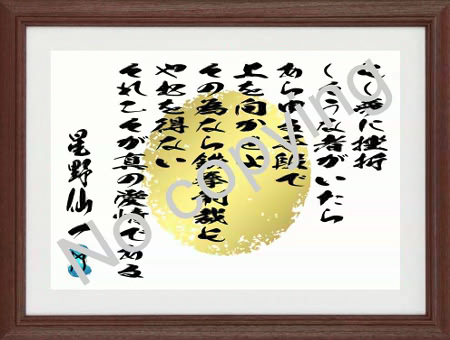 もし夢に挫折
しそうな者がいたら
あらゆる手段で
上を向かせよ
その為なら鉄拳制裁も
やむを得ない
それこそが真の愛情である
星野仙一
No copying